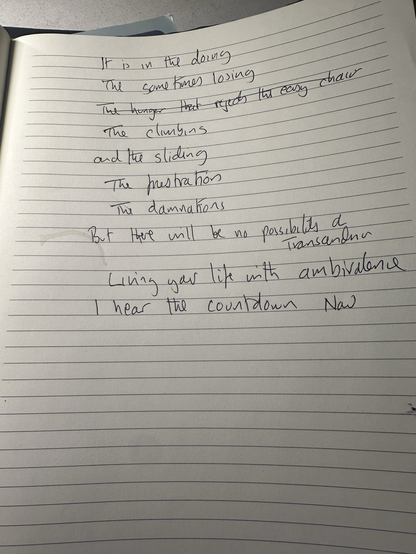 It is in the doing
The sometimes losing
The hunger that rejects the easy chair
The climbing
and the sliding
The frustration
The damnations
But there will be no possibility of
Transcendence
Living your life with ambivalence
I hear the countdown Now